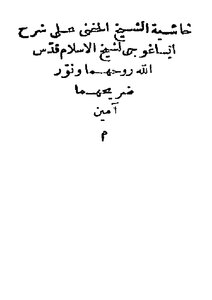 حاشية الشيخ الحفنى على شرح
ايساغوجى لشيخ الاسلام قدس
الله روحهما ونور
ضريحهما
آمين
م